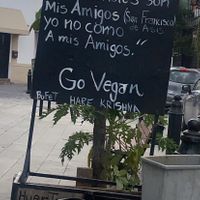 son
Mis Amigos (San Francisco
yo no como de Asis
A mis Amigos."
Go Vegan
BUFET HARE KRISHNA